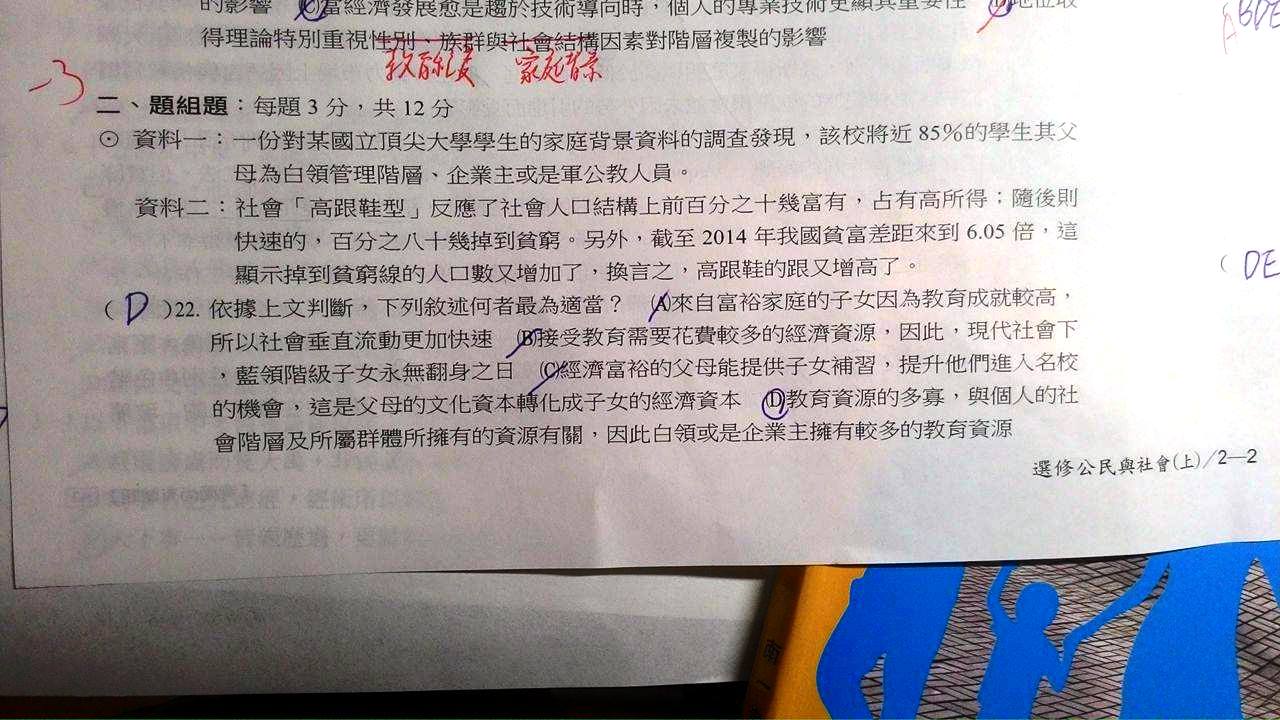 的影響 (C)當經濟發展愈是趨於技術導向時，個人的專業技術更顯其重要性 (D)地位取
得理論特別重視性別、族群與社會結構因素對階層複製的影響
教育程度 家庭背景
ABDE
-3
二、題組題：每題 3 分，共 12 分
⊙ 資料一：一份對某國立頂尖大學學生的家庭背景資料的調查發現，該校將近 85%的學生其父
母為白領管理階層、企業主或是軍公教人員。
資料二：社會「高跟鞋型」反應了社會人口結構上前百分之十幾富有，占有高所得；隨後則
快速的，百分之八十幾掉到貧窮。另外，截至 2014 年我國貧富差距來到 6.05 倍，這
顯示掉到貧窮線的人口數又增加了，換言之，高跟鞋的跟又增高了。
( DE
( D )22. 依據上文判斷，下列敘述何者最為適當？ (A)來自富裕家庭的子女因為教育成就較高，
所以社會垂直流動更加快速 (B)接受教育需要花費較多的經濟資源，因此，現代社會下
，藍領階級子女永無翻身之日 (C)經濟富裕的父母能提供子女補習，提升他們進入名校
的機會，這是父母的文化資本轉化成子女的經濟資本 (D)教育資源的多寡，與個人的社
會階層及所屬群體所擁有的資源有關，因此白領或是企業主擁有較多的教育資源
選修公民與社會(上)/2—2
南一